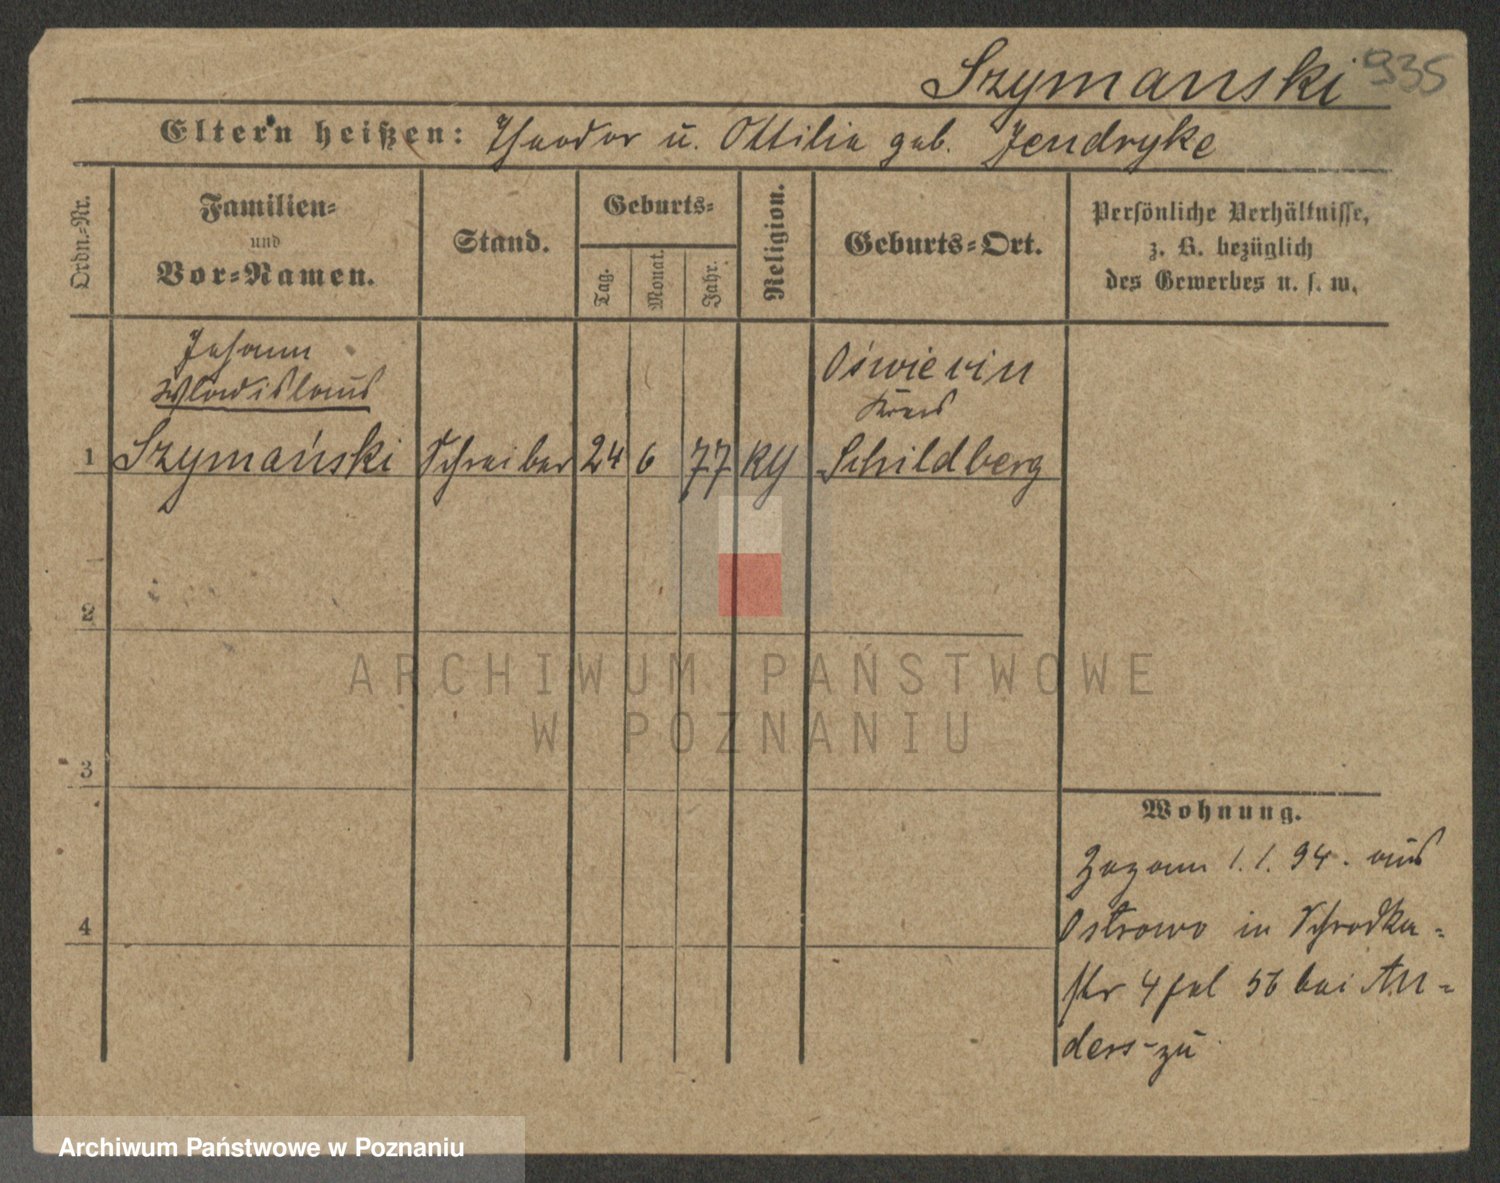 Szymanski 935
Eltern heißen: Theodor u. Ottilie geb. Jendryke
Ordn.-Nr.
Familien-
und
Vor-Namen.
Stand.
Geburts-
Tag.
Monat.
Jahr.
Religion.
Geburts-Ort.
Persönliche Verhältnisse,
z. B. bezüglich
des Gewerbes u. s. w.
Johann
Wladislaus
Oświecin
Kreis
1 Szymański Schreiber 24 6 77 Schildberg
2
ARCHIWUM PAŃSTWOWE
W POZNANIU
3
4
Wohnung.
Zugann 1.1.94. aus
Ostrowo in Schrodka-
4 bei An-
ders-zu
Archiwum Państwowe w Poznaniu